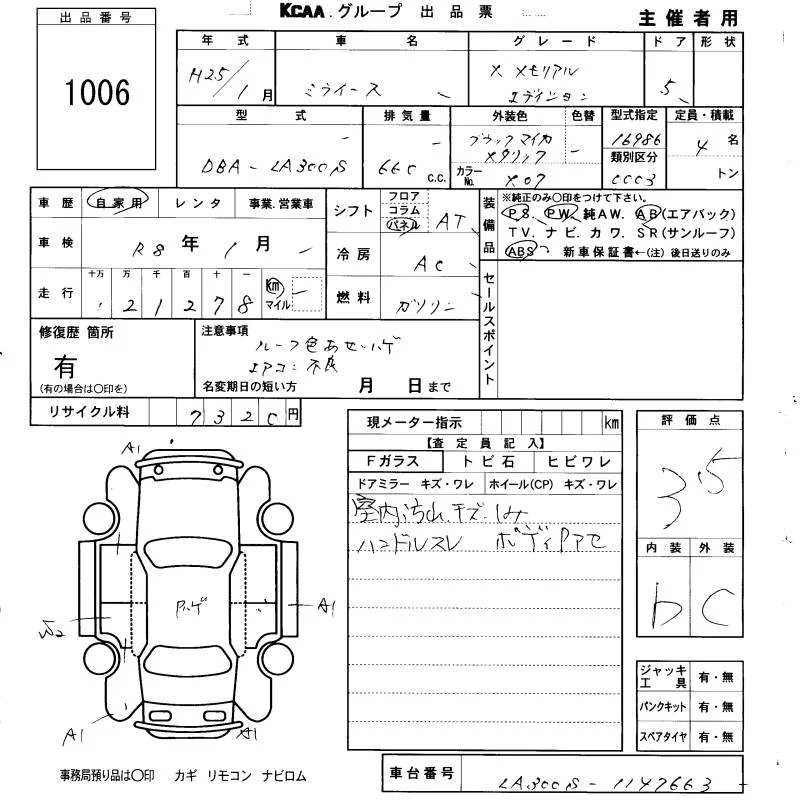 KCAA.グループ 出品票
主催者用
出品番号
1006
年式 車名 グレード ドア 形状
H25/1月 ミライース X メモリアル エディション 5
型式 排気量 外装色 色替 型式指定 定員・積載
DBA-LA300S 660 c.c. ブラックマイカ メタリック 16986 4名
カラーNo. X07 類別区分 0003 トン
車歴 自家用 レンタ 事業.営業車
シフト フロア コラム パネル AT
車検 R8年1月
冷房 AC
走行 十万 万 千 百 十 一
21278 km マイル
燃料 ガソリン
装備品 ※純正のみ○印をつけて下さい。
PS. PW. 純AW. AB(エアバック)
TV. ナビ. カワ. SR(サンルーフ)
ABS 新車保証書←(注) 後日送りのみ
セールスポイント
修復歴 箇所
有
(有の場合は○印を)
注意事項
ルーフ色あせ.ハゲ
エアコン不良
名変期日の短い方 月 日まで
リサイクル料 7320円
現メーター指示 km
【査定員記入】
Fガラス トビ石 ヒビワレ
ドアミラー キズ・ワレ ホイール(CP) キズ・ワレ
室内汚れ.キズ.しみ
ハンドルスレ ボディPアセ
評価点
3.5
内装 外装
b C
A1
Pハゲ
A1
A1
A1
ジャッキ工具 有・無
パンクキット 有・無
スペアタイヤ 有・無
事務局預り品は○印 カギ リモコン ナビロム
車台番号 LA300S-1147663